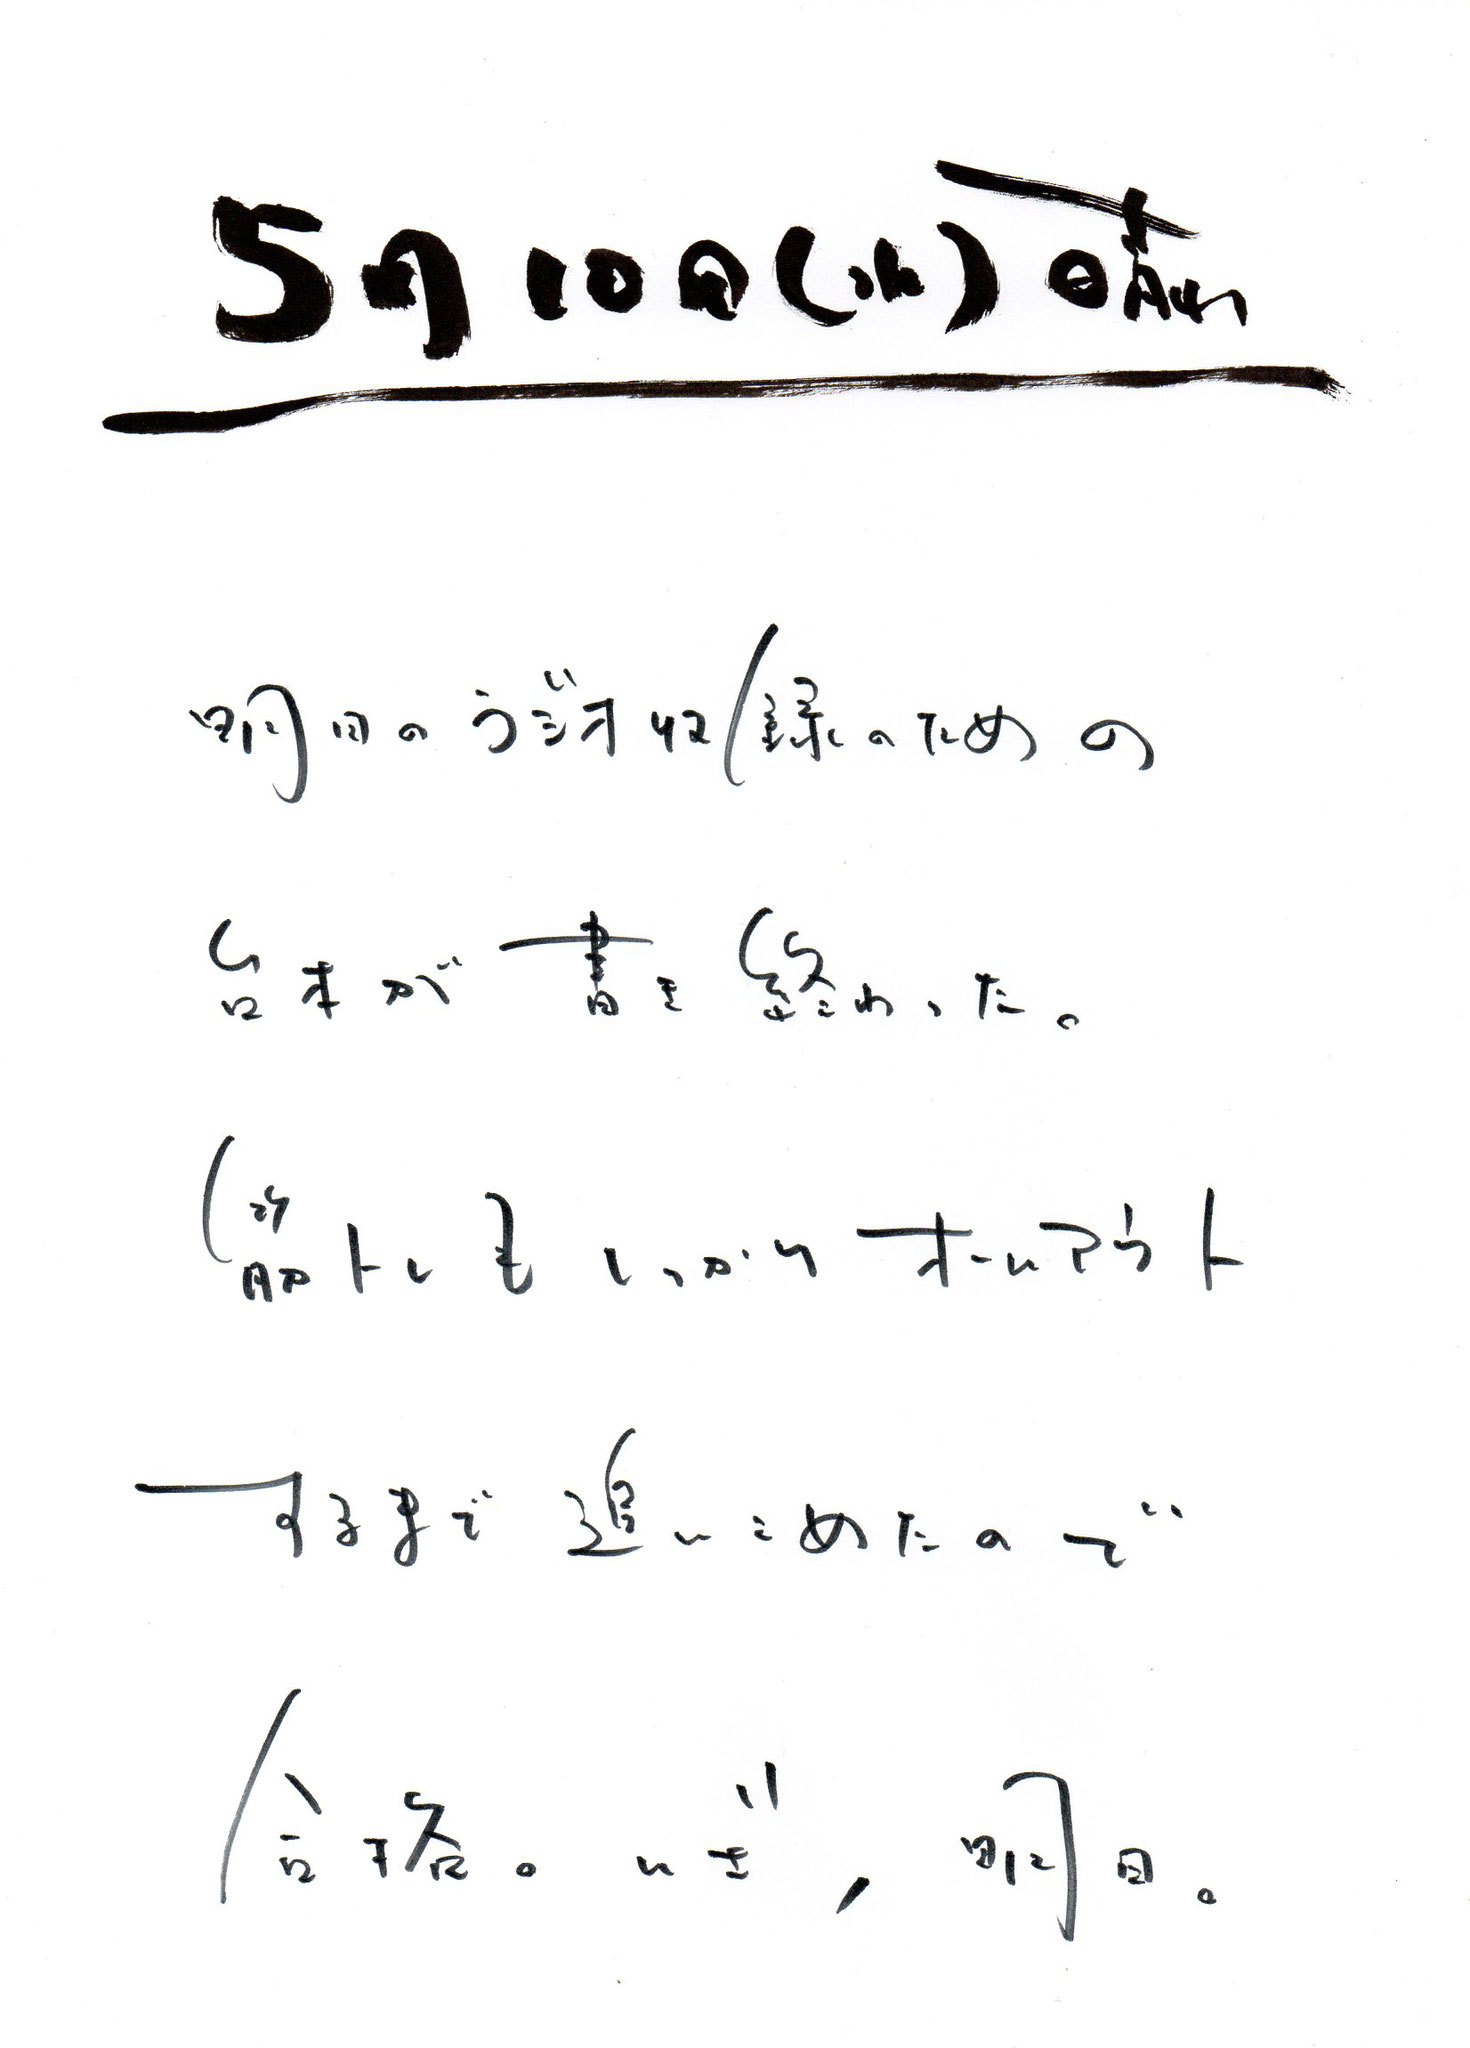 5月10日(水)晴れ
明日のラジオ収録のための
台本が書き終わった。
筋トレもしっかりオールアウト
するまで追いこめたので
合格。いざ,明日。